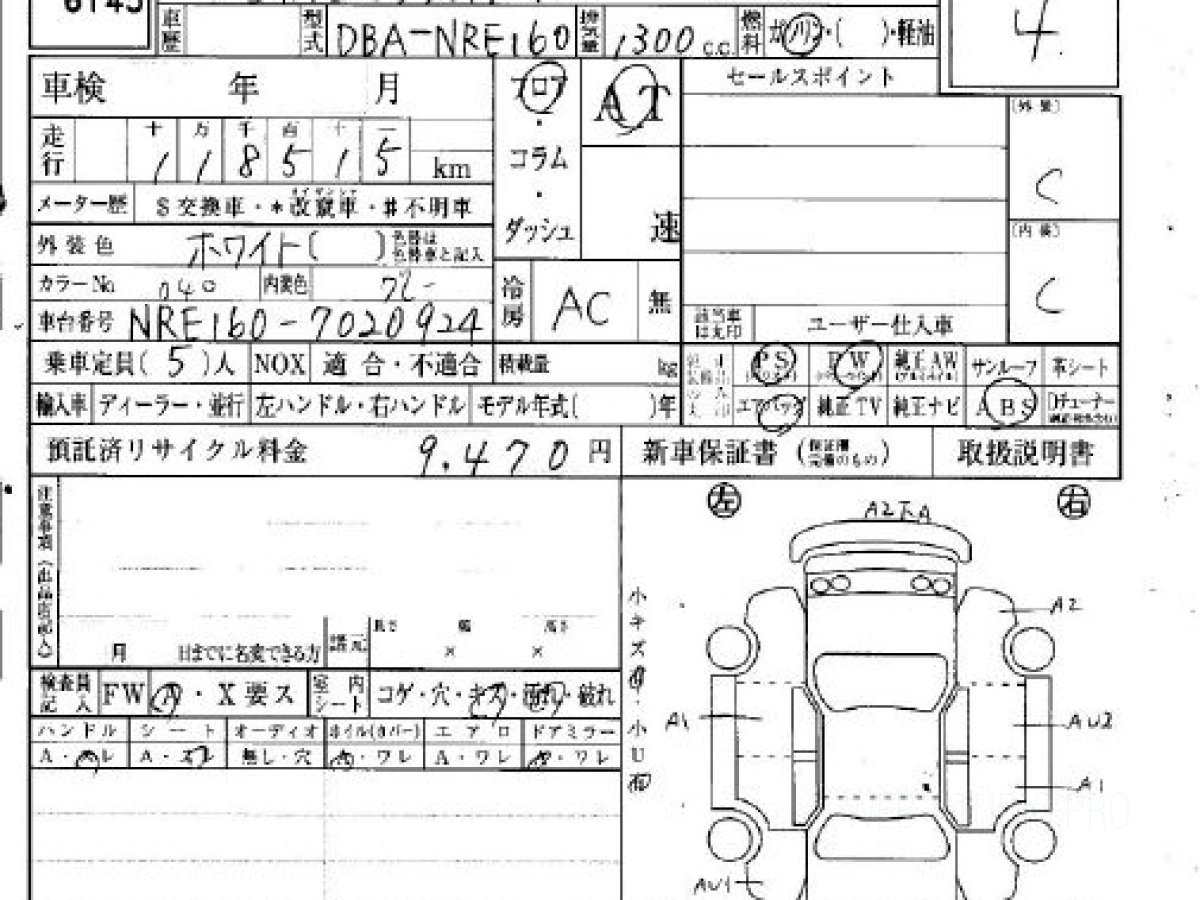 6145
車歴 型式 DBA-NRE160 排気量 1300 c.c. 燃料 ガソリン・( )・軽油 4
車検 年 月 フロア AT セールスポイント
(外装)
走行 十 万 千 百 十 一
1 1 8 5 1 5 km
・コラム C
メーター歴 S交換車・*改竄車・#不明車
・ダッシュ 速 (内装)
外装色 ホワイト( ) 色替は色替車と記入
カラーNo 040 内装色 グレー 冷房 AC 無 C
車台番号 NRE160-7020924 該当車は丸印 ユーザー仕入車
乗車定員( 5 )人 NOX 適合・不適合 積載量 kg PS PW 純正AW サンルーフ 革シート
輸入車 ディーラー・並行 左ハンドル・右ハンドル モデル年式( )年 エアバッグ 純正TV 純正ナビ ABS
預託済リサイクル料金 9.470 円 新車保証書 取扱説明書
注意事項(出品店記入)
左 右
A2下A
小キズ
A2
月 日までに名変できる方 諸元 長さ × 幅 × 高さ
検査員記入 FW A・X要ス 室内シート コゲ・穴・キズ・汚れ・破れ
A1 AU2
小U
ハンドル シート オーディオ ホイル(カバー) エアロ ドアミラー
A・ワレ 無し・穴 A・ワレ A・ワレ
A1
AU1
PRO